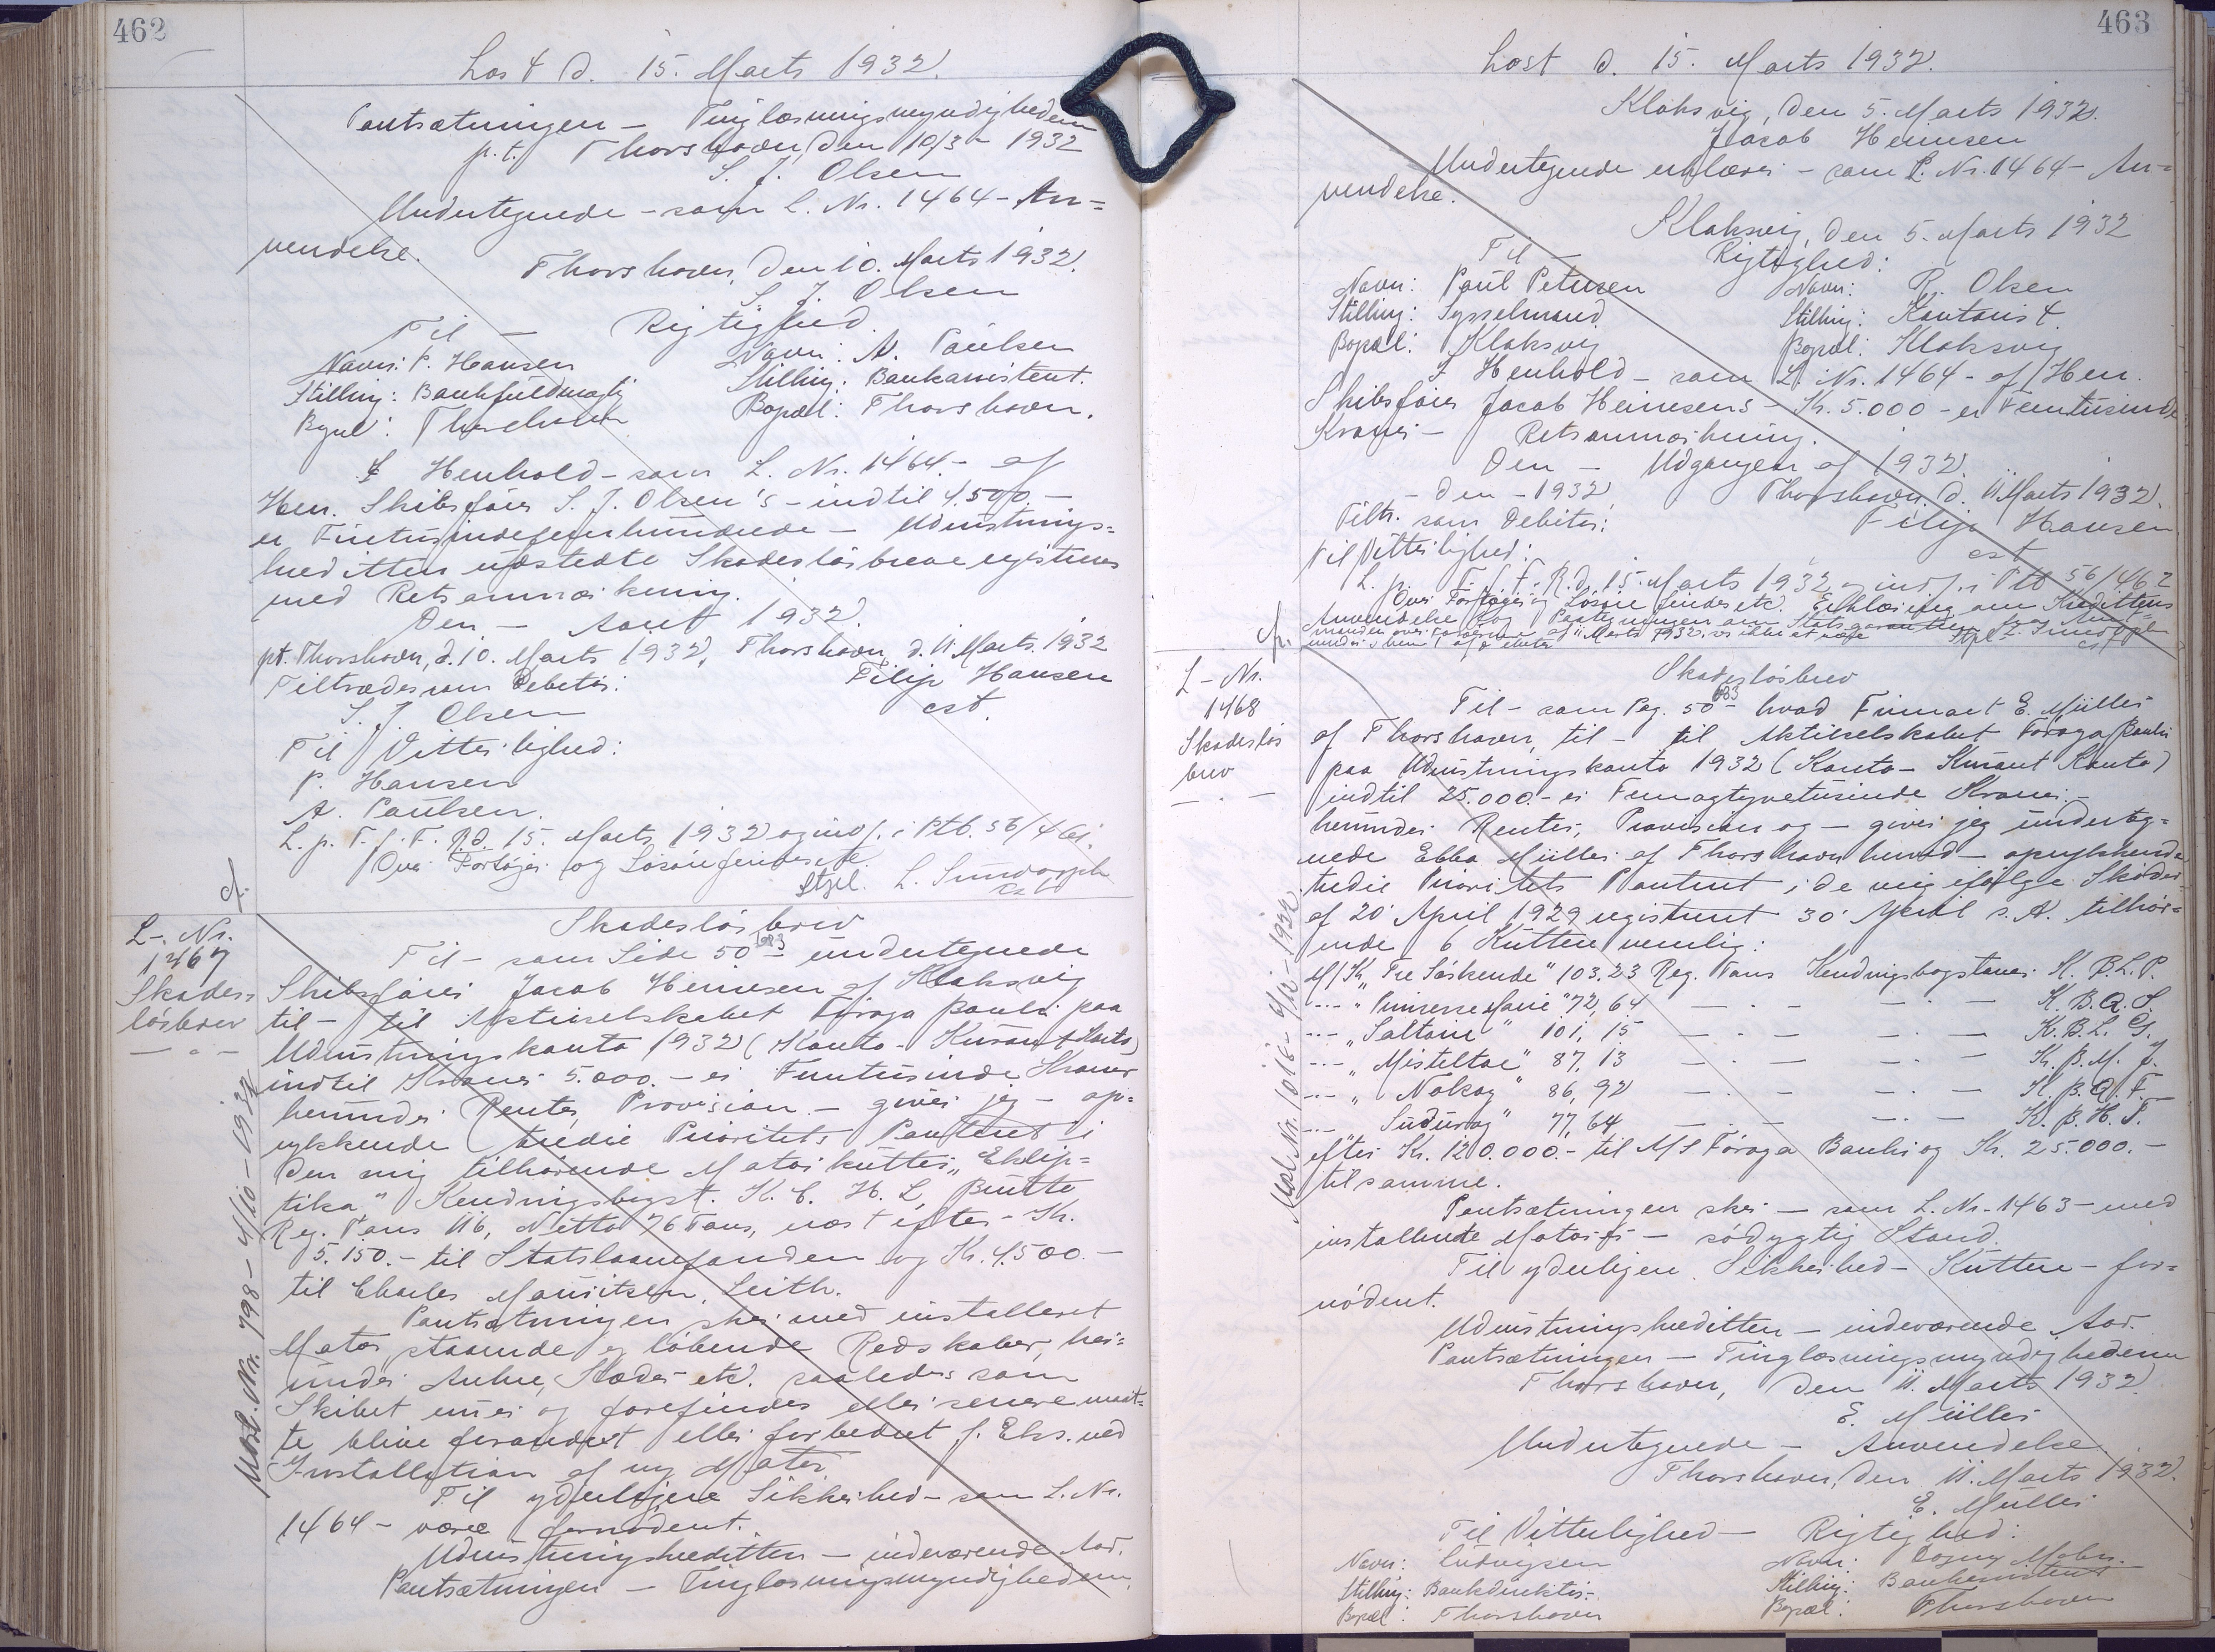 462
Læst d. 15. Marts 1932.
Pantsætningen — Tinglæsningsmyndigheden
p.t. Thorshavn, den 10/3 - 1932
S. J. Olsen
Undertegnede - som L. Nr. 1464 - An=
vendelse.
Thorshavn, den 10. Marts 1932.
S. J. Olsen
Til — Rigtighed.
Navn: P. Hansen Navn: A. Paulsen
Stilling: Bankfuldmægtig Stilling: Bankassistent.
Bopæl: Thorshavn Bopæl: Thorshavn.
I Henhold - som L. Nr. 1464 - af
Hr. Skibsfører S. J. Olsen's - indtil 4.500.—
er Firetusindefemhundrede — Udrustnings=
kreditten udstedte Skadesløsbreve registreres
med Retsanmærkning.
Den — Aaret 1932.
pt. Thorshavn, d. 10. Marts 1932. Thorshavn, d. 11 Marts 1932
Tiltrædes som Debitor: Filip Hansen
S. J. Olsen cst.
Til Vitterlighed:
P. Hansen
A. Paulsen.
L. p. T. f. F. R.d. 15. Marts 1932 og indf. i Ptb. 56/461.
Ove Fortøjer og Løsøre findes etc.
Stpl. L. Sundorph
cst
cf.
L-. Nr.
1467
Skades=
løsbrev
Skadesløsbrev
Til - som Side 50 683 - undertegnede
Skibsfører Jacob Heinesen af Klaksvig
til - til Aktieselskabet Föroya Banki paa
Udrustningskonto 1932 (Konto-Kurant Konto)
indtil Kroner 5.000.- er Femtusinde Kroner
herunder Renter, Provision - giver jeg - op=
rykkende tredie Prioritets Panteret i
den mig tilhørende Motorkutter „Eklip=
tika" Kendingsbogst. K. C. H. L, Brutto
Reg. Tons 116, Netto 76 Tons, næst efter - Kr.
5.150.- til Statslaanefonden og Kr. 4.500.-
til Charles Mauritzen, Leith.
Pantsætningen sker med installeret
Motor, staaende og løbende Redskaber, her=
under Ankre, Kæder etc. saaledes som
Skibet nu er og forefindes eller senere maat=
te blive forandret eller forbedret f. Eks. ved
Installation af ny Motor.
Til yderligere Sikkerhed - som L. Nr.
1464 - være fornødent.
Udrustningskreditten — indeværende Aar.
Pantsætningen — Tinglæsningsmyndigheden.
463
Læst d. 15. Marts 1932.
Klaksvig, den 5. Marts 1932.
Jacob Heinesen
Undertegnede erklærer - som L. Nr. 1464 - An=
vendelse.
Klaksvig, den 5. Marts 1932
Til — Rigtighed:
Navn: Poul Petersen Navn: R. Olsen
Stilling: Sysselmand. Stilling: Kontorist.
Bopæl: Klaksvig Bopæl: Klaksvig
I Henhold - som L. Nr. 1464 - af Herr.
Skibsfører Jacob Heinesens - Kr. 5.000 - er Femtusinde
Kroner — Retsanmærkning.
Den — Udgangen af 1932.
- den - 1932 Thorshavn d. 11 Marts 1932.
Tiltr. som Debitor: Filip Hansen
Til Vitterlighed: cst
L. p. T. f. F. R.d. 15. Marts 1932 og indf. i Ptb 56/462
Ove Fortøjer og Løsøre findes etc. Erklæring om Kredittens
Anvendelse og Paategningen om Statsgarantien
Stpl L. Sundorph
cst
cf.
L - Nr.
1468
Skadesløs
brev
Skadesløsbrev
Til - som Pag. 50 683 - hvad Firmaet E. Müller
af Thorshavn, til - til Aktieselskabet Föroya Banki
paa Udrustningskonto 1932 (Konto-Kurant Konto)
indtil 25.000.- er Femogtyvetusinde Kroner -
herunder Renter, Provision og - giver jeg underteg=
nede Ebba Müller af Thorshavn herved - oprykkende
tredie Prioritets Panteret i de mig ifølge Skøder
af 20' April 1929 registreret 30' April s. A. tilhør=
ende 6 Kuttere nemlig:
M/K „Tre Søskende" 103.23 Reg. Tons Kendingsbogstaver K. B. L. P.
--- „Prinsesse Marie" 72,64 — . - — . — K. B. Q. S.
--- „Saltaire" 101, 15 — . - — . — K. B. L. G.
--- „Misteltoe" 87, 13 — . - — . — K. B. M. J.
--- „Nolsoy" 86, 92 — . - — . — K. B. Q. F.
--- Suduroy" 77, 64 — . - — . — K. B. H. T.
efter Kr. 120.000.- til A/S Föroya Banki og Kr. 25.000.-
til samme.
Pantsætningen sker - som L. Nr. 1463 - med
installerede Motorer - sødygtig Stand.
Til yderligere Sikkerhed - Kuttere - for=
nødent.
Udrustningskreditten — indeværende Aar.
Pantsætningen — Tinglæsningsmyndighedern
Thorshavn, den 11. Marts 1932.
E. Müller
Undertegnede — Anvendelse.
Thorshavn, den 11. Marts 1932.
E. Müller
Til Vitterlighed — Rigtighed:
Navn: Ludvigsen Navn: Dagny
Stilling: Bankdirektør. Stilling: Bankassistent
Bopæl: Thorshavn Bopæl: Thorshavn